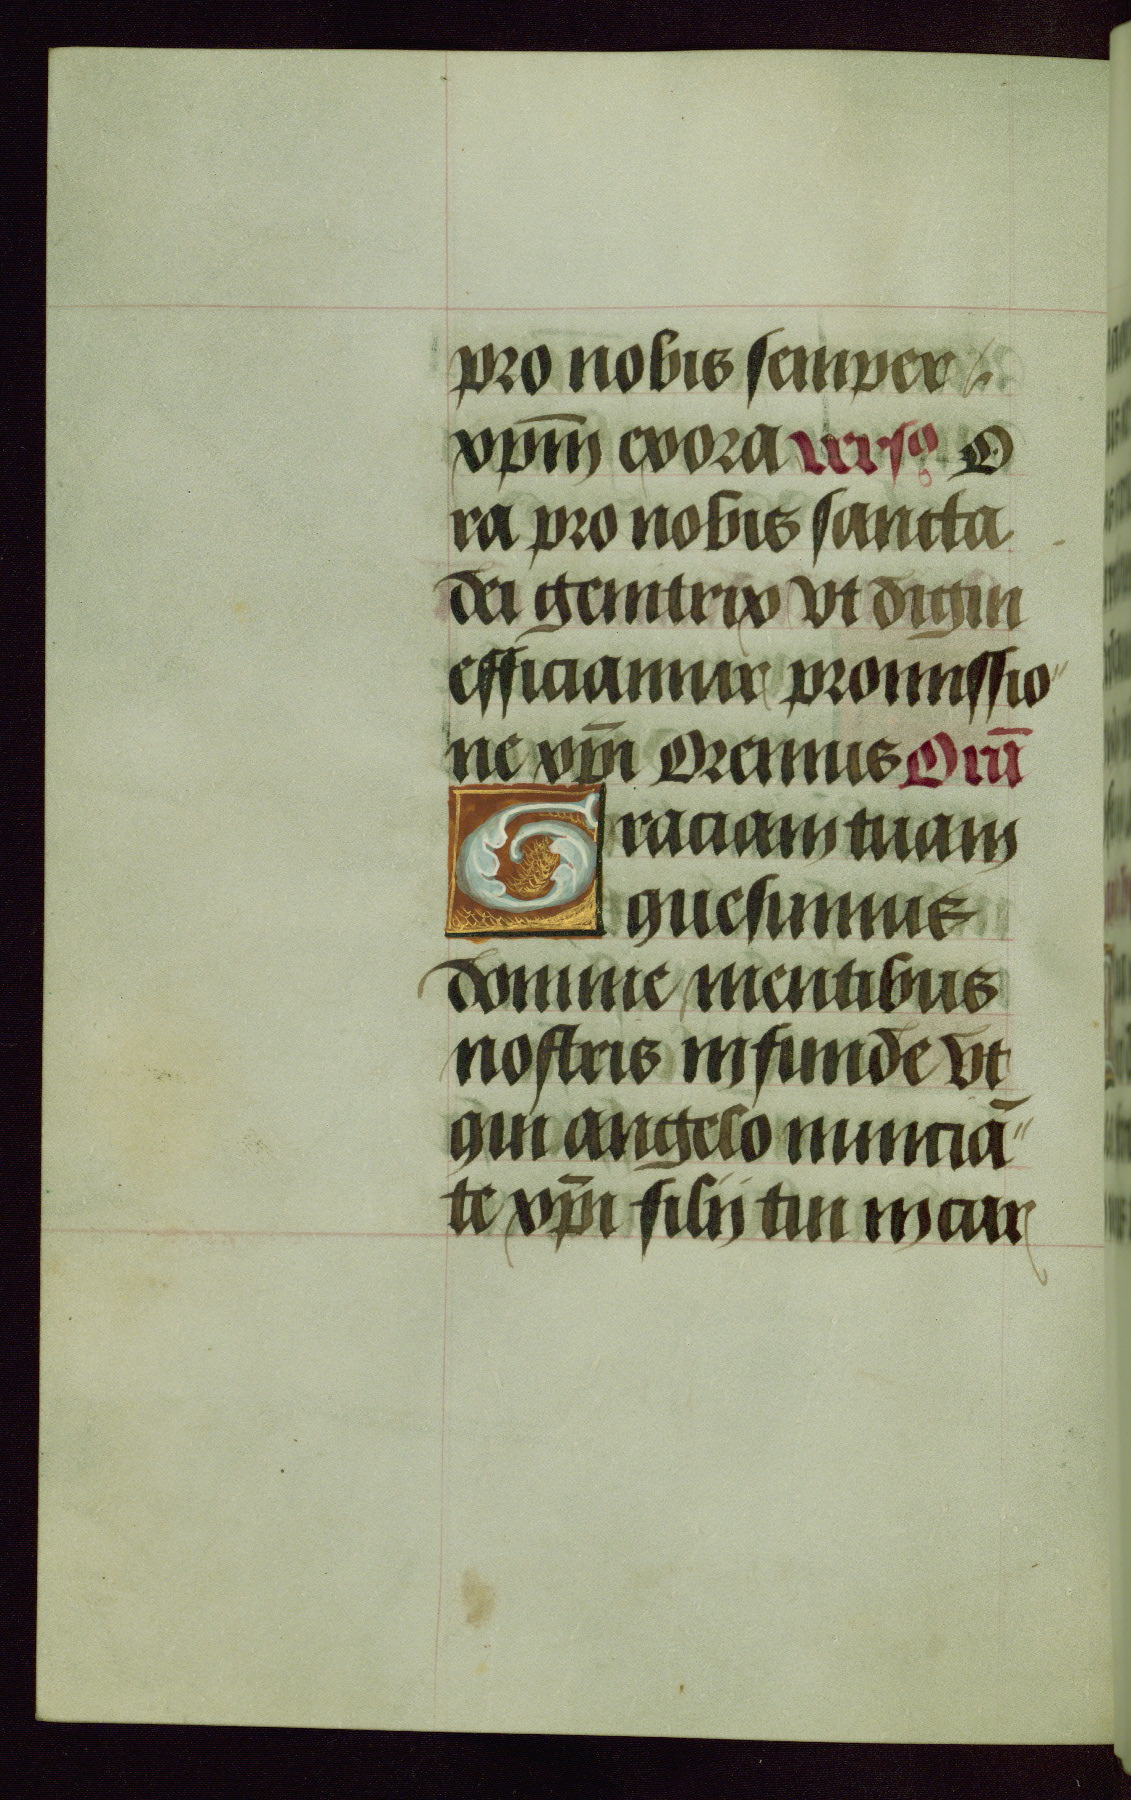 pro nobis semper
xp̄m exora versꝯ O
ra pro nobis sancta
dei genitrix vt digni
efficiamur promissio
ne xp̄i Oremus Orū
Graciam tuam
quesumus
domine mentibus
nostris infunde vt
qui angelo nunciā
te xp̄i filij tui incar